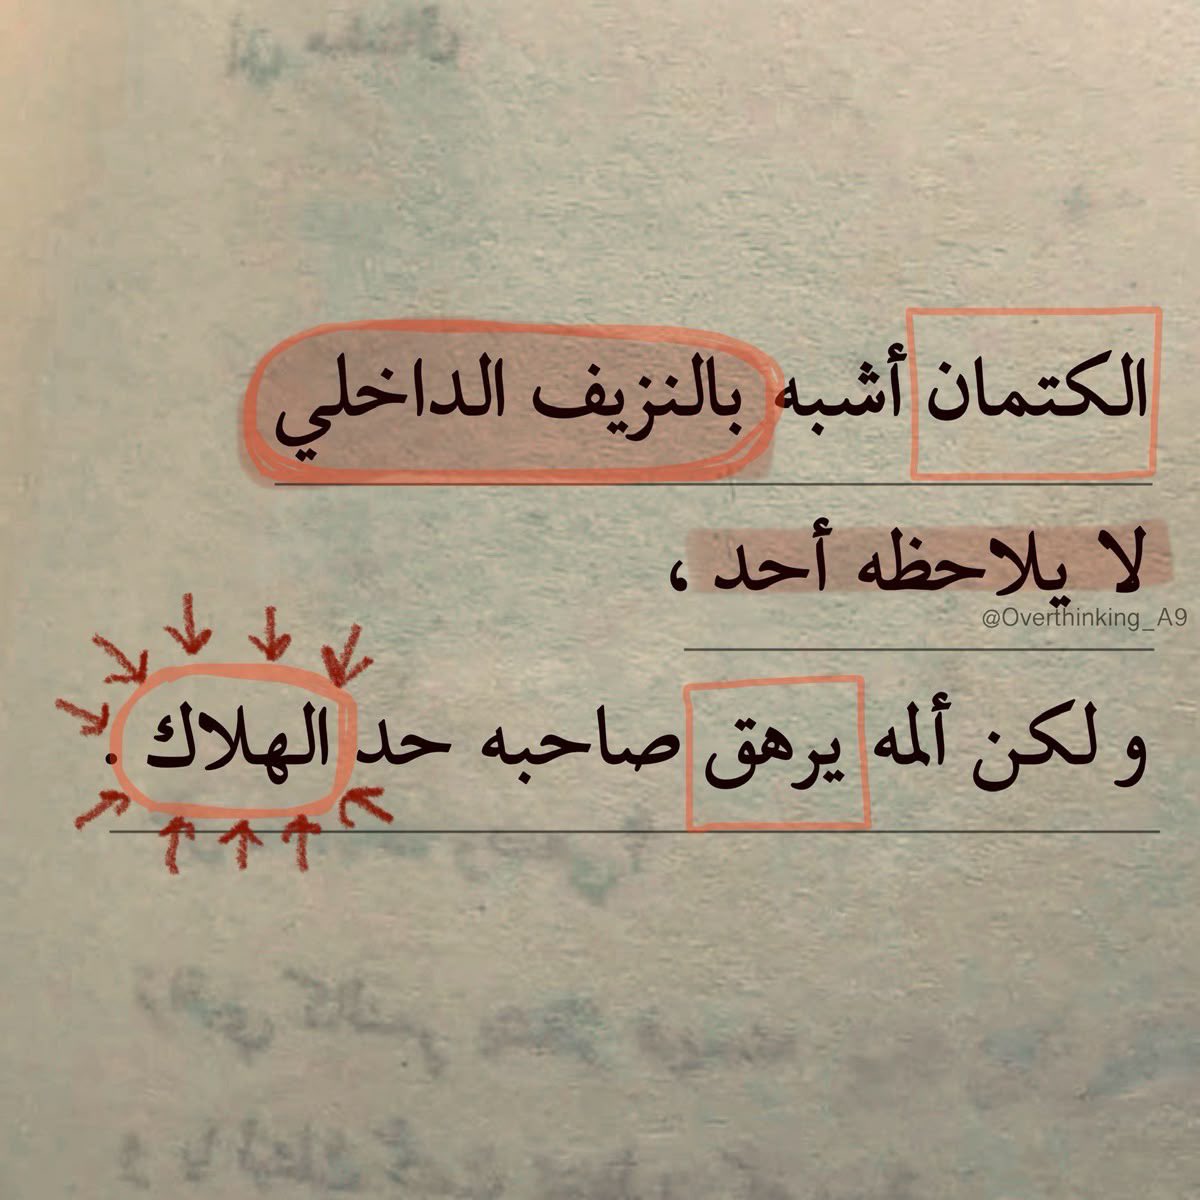 الكتمان أشبه بالنزيف الداخلي
لا يلاحظه أحد ،
@Overthinking_A9
و لكن ألمه يرهق صاحبه حد الهلاك .